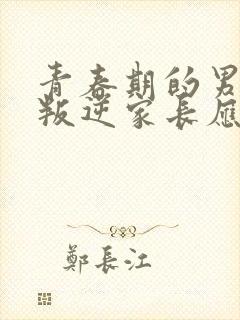 青春期的男
叛逆家長應
鄭長江